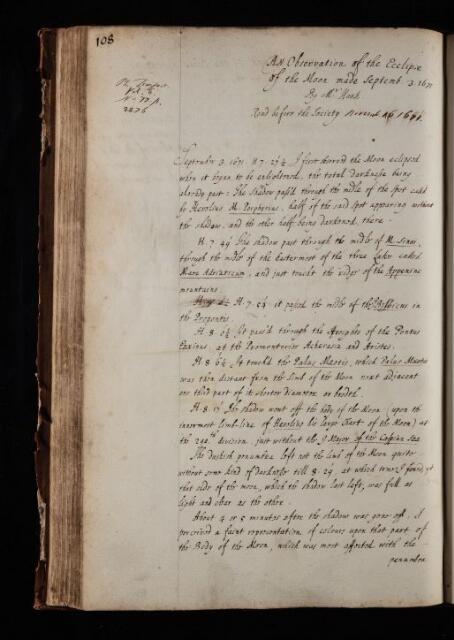 108
An Observation of the Eclipse
of the Moon made Septemb. 3. 1671
By Mr Hook
Read before the Society
September 3. 1671. H 7. I first observed the Moon eclipsed
when it began to be enlightened, the total darkness being
already past: The Shadow pass'd through the midle of the spot call'd
by Hevelius M. Porphyrius, half of the said spot appearing without
the shadow, and the other half being darkened, there.
H. 7. 49' The shadow past through the middle of M. Sinai,
through the midle of the Eastermost of the three Lakes called
Mare Adriaticum, and just touch'd the edges of the Appenine
mountains.
H. 7. it passed the midle of the in
the Propontis.
H. 8. It pass'd through the of the Pontus
Euxinus, at the Promontories Acherusia and
H. 8 It touch'd the Palus Mæotis, which Palus Mæotis
was then distant from the limb of the Moon next adjacent
one third part of its shorter Diameter or breadth.
H. 8. The shadow went off the body of the Moon (upon the
innermost limb-line of Hevelius his large Chart of the Moon) at
the division, just without the Major of the Caspian Sea
The duskish penumbra left not the limb of the Moon quite
without some kind of darkness till 8. 29. at which time I found, yt
that side of the moon, which the shadow last left, was full as
light and clear as the other.
About 4 or 5 minutes after the shadow was gone off, I
perceived a faint representation of colours upon that part of
the Body of the Moon, which was most affected with the
penumbra